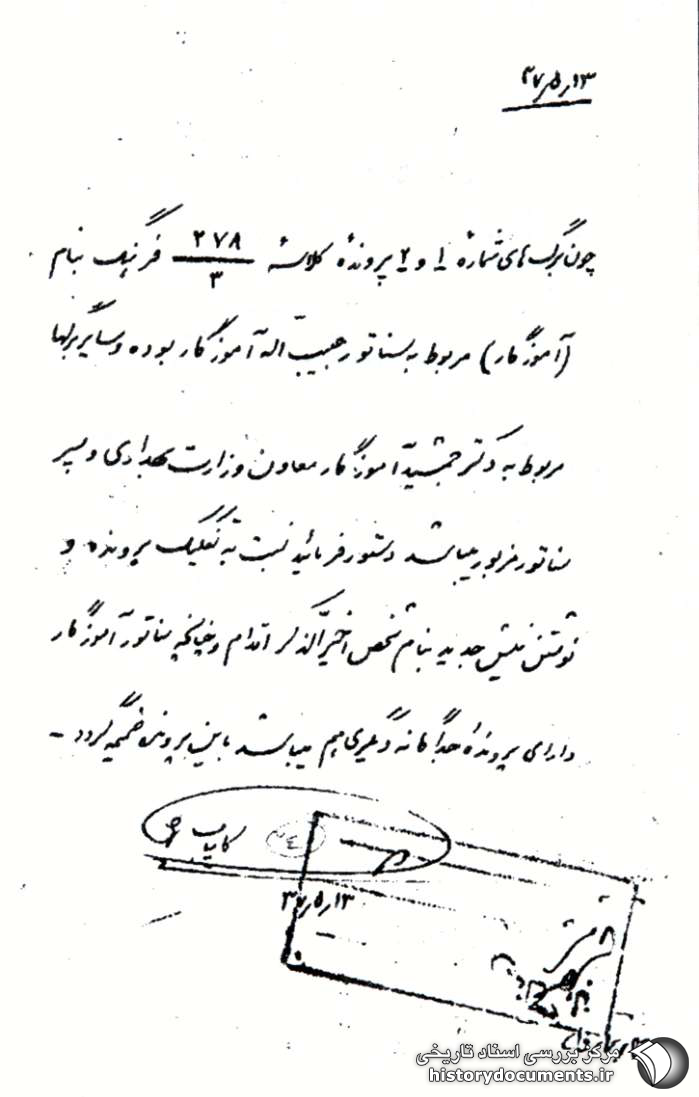 ۳۷٫۵٫۱۳
چون برگ های شمارهٔ ۱ و ۲ پروندهٔ کلاسهٔ ۲۷۸/۳ فرهنگ بنام
(آموزگار) مربوط به سناتور حبیب اله آموزگار بوده و سایر برگها
مربوط به دکتر جمشید آموزگار معاون وزارت بهداری و پسر
سناتور مزبور میباشد دستور فرمائید نسبت به تفکیک پرونده و
نوشتن فیش جدید بنام شخص اخیرالذکر اقدام و چنانچه سناتور آموزگار
دارای پروندهٔ جداگانه دیگری هم میباشد باین پرونده ضمیمه گردد -
کامیاب
۳۷٫۵٫۱۳
مرکز بررسی اسناد تاریخی
historydocuments.ir